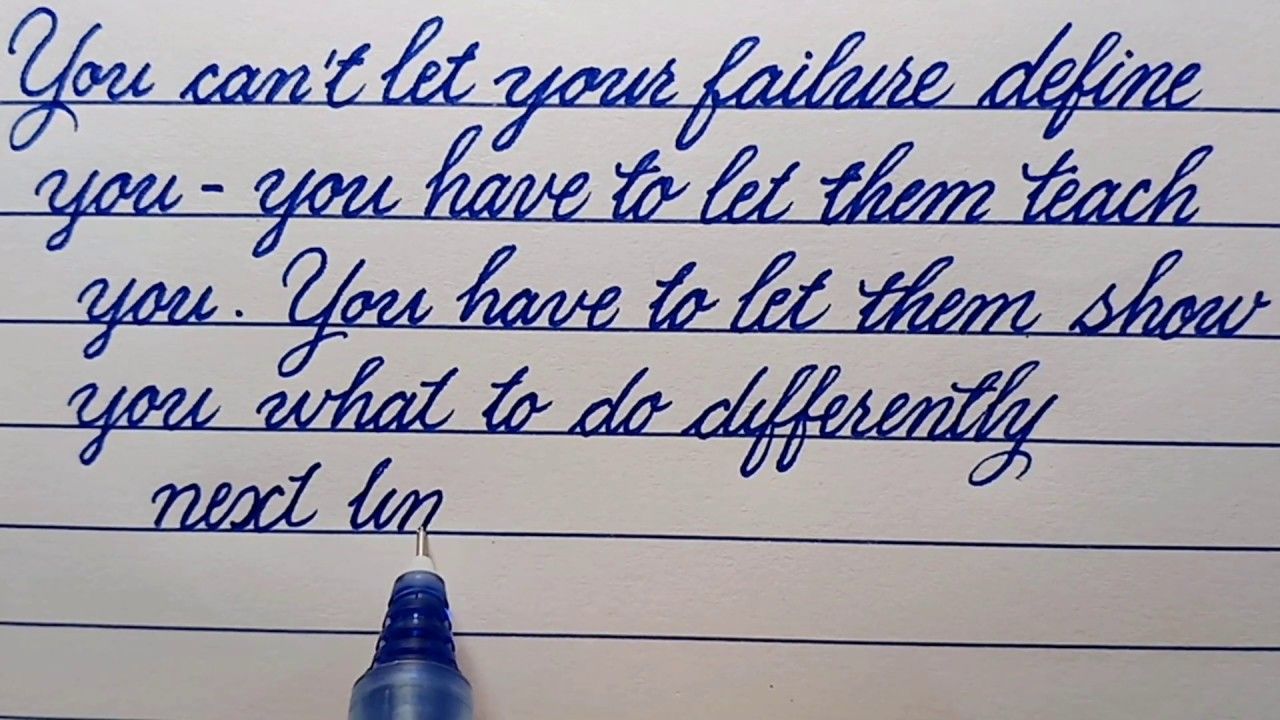 You can't let your failure define
you - you have to let them teach
you. You have to let them show
you what to do differently
next